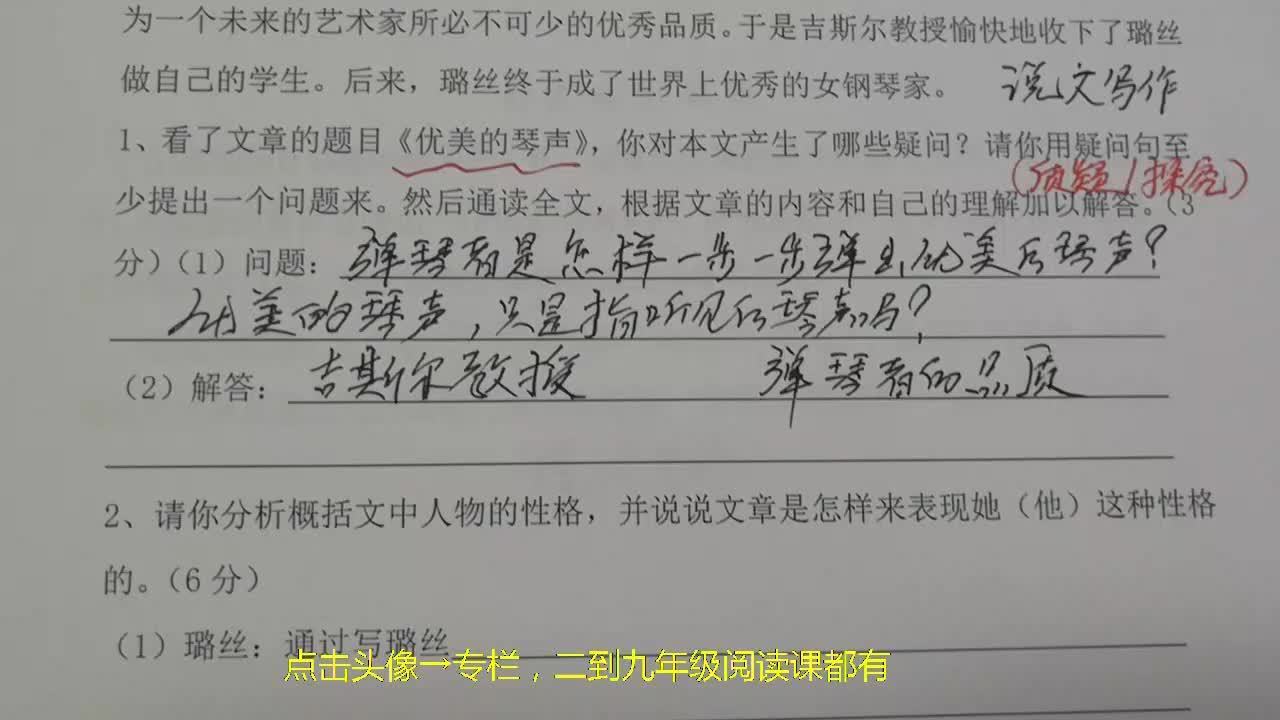 为一个未来的艺术家所必不可少的优秀品质。于是吉斯尔教授愉快地收下了璐丝
做自己的学生。后来，璐丝终于成了世界上优秀的女钢琴家。 说文写作
1、看了文章的题目《优美的琴声》，你对本文产生了哪些疑问？请你用疑问句至
（质疑/探究）
少提出一个问题来。然后通读全文，根据文章的内容和自己的理解加以解答。（3
分）（1）问题：弹琴者是怎样一步一步弹出优美的琴声？
优美的琴声，只是指听见的琴声吗？
（2）解答：吉斯尔教授 弹琴者的品质
2、请你分析概括文中人物的性格，并说说文章是怎样来表现她（他）这种性格
的。（6分）
（1）璐丝：通过写璐丝
点击头像→专栏，二到九年级阅读课都有